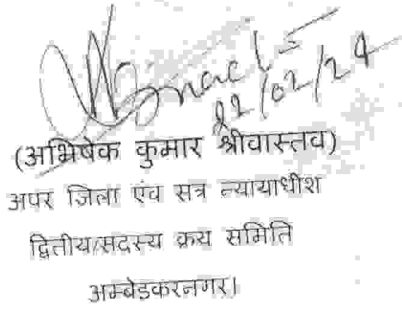 22/02/24
(अभिषेक कुमार श्रीवास्तव)
अपर जिला एंव सत्र न्यायाधीश
द्वितीय/सदस्य क्रय समिति
अम्बेडकरनगर।